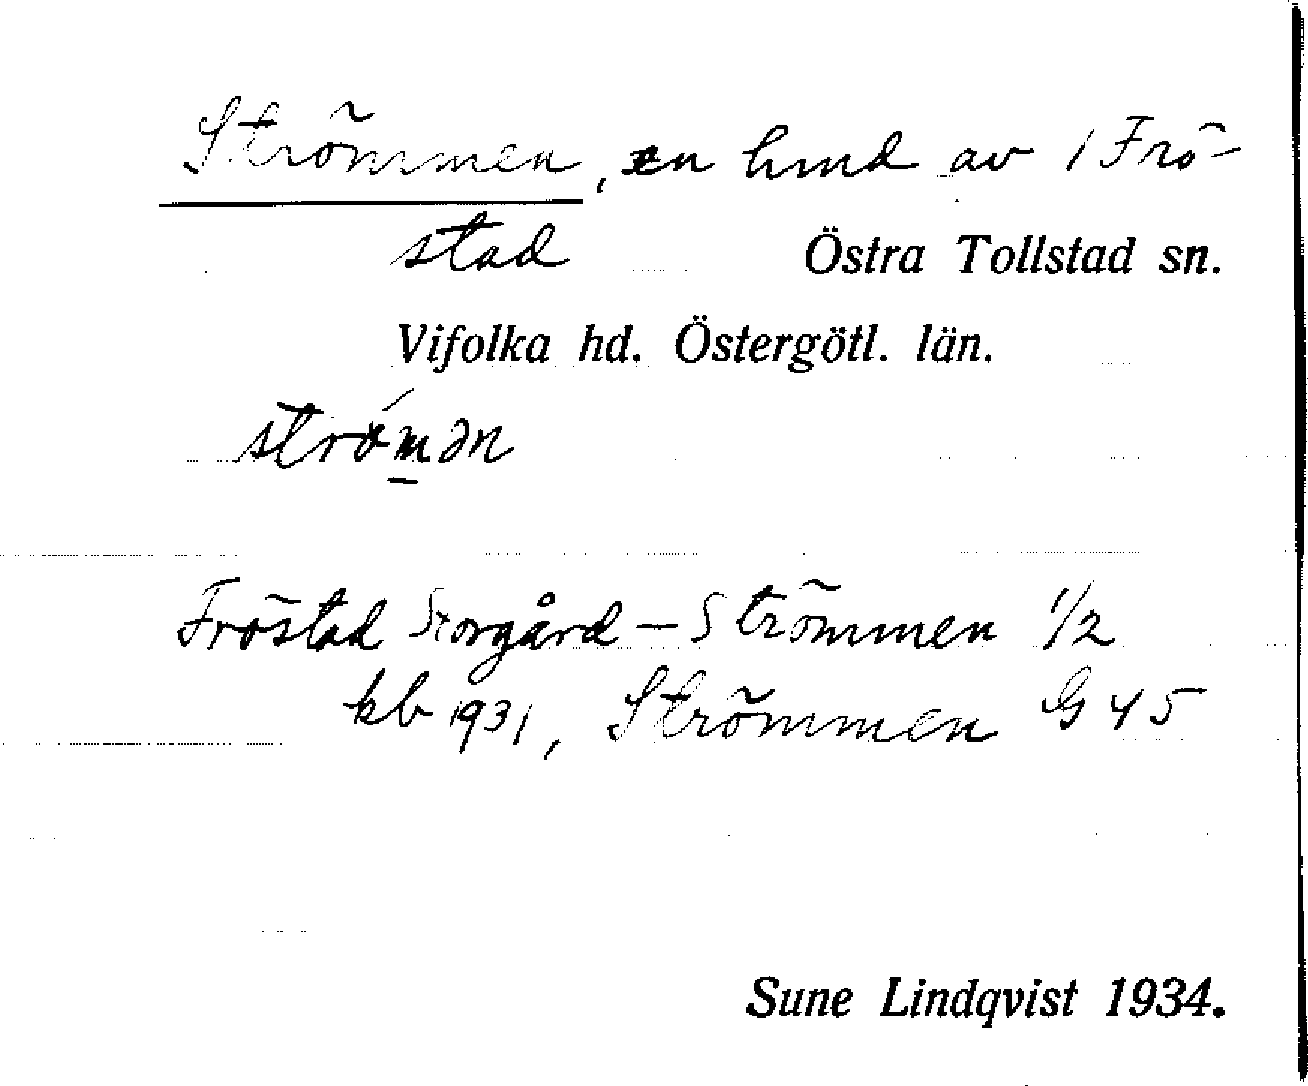 Strömmen, en hmd av 1 Frö-
stad Östra Tollstad sn.
Vifolka hd. Östergötl. län.
strö́m̲ən
Fröstad Storgård – Strömmen 1/2
kb 1931, Strömmen G 45
Sune Lindqvist 1934.